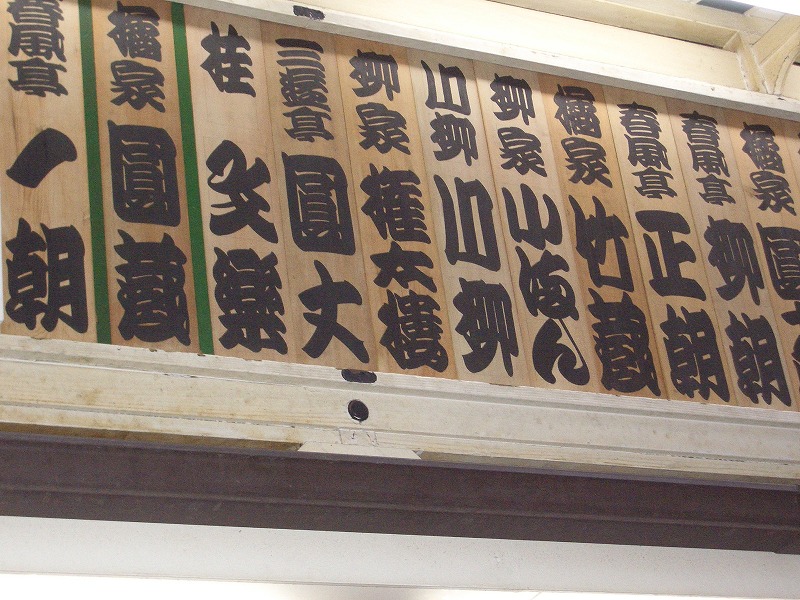 橘家圓
春風亭柳朝
春風亭正朝
橘家竹蔵
柳家小満ん
川柳川柳
柳家権太楼
三遊亭圓丈
桂文楽
橘家圓蔵
春風亭一朝